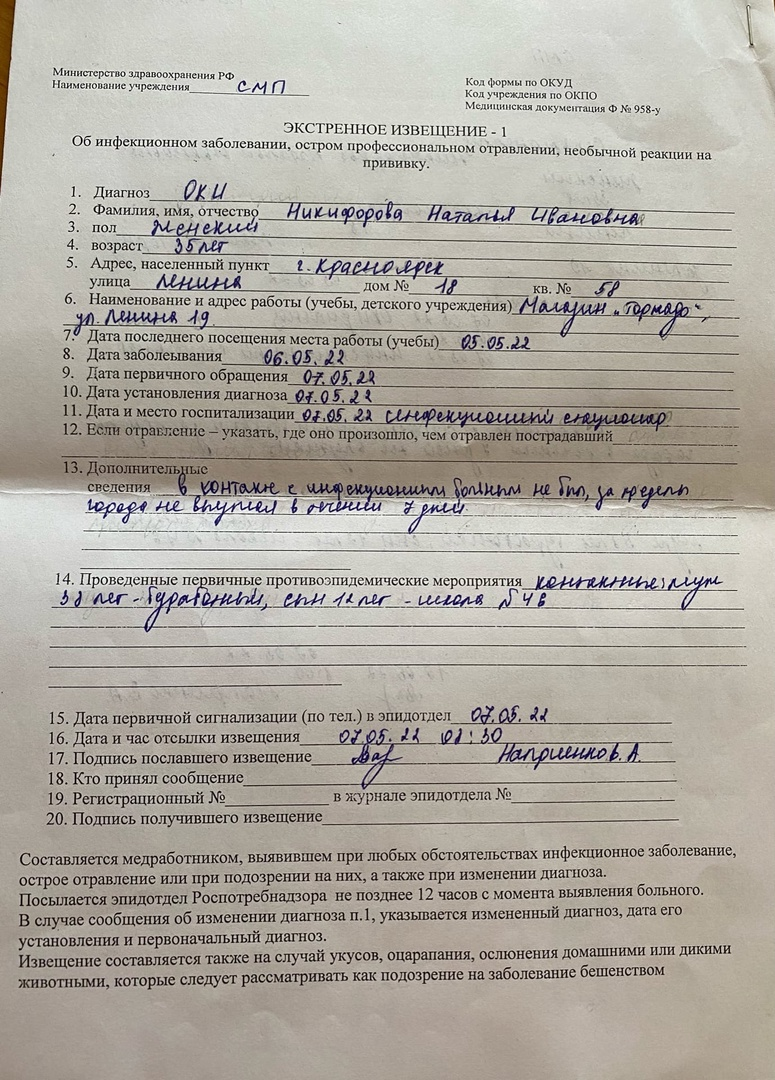 Министерство здравоохранения РФ
Наименование учреждения СМП
Код формы по ОКУД
Код учреждения по ОКПО
Медицинская документация Ф № 958-у
ЭКСТРЕННОЕ ИЗВЕЩЕНИЕ - 1
Об инфекционном заболевании, остром профессиональном отравлении, необычной реакции на
прививку.
1. Диагноз ОКИ
2. Фамилия, имя, отчество Никифорова Наталья Ивановна
3. пол Женский
4. возраст 35 лет
5. Адрес, населенный пункт г. Красноярск
улица Ленина дом № 18 кв. № 58
6. Наименование и адрес работы (учебы, детского учреждения) Магазин „Торнадо“,
ул. Ленина 19
7. Дата последнего посещения места работы (учебы) 05.05.22
8. Дата заболеывания 06.05.22
9. Дата первичного обращения 07.05.22
10. Дата установления диагноза 07.05.22
11. Дата и место госпитализации 07.05.22 инфекционный стационар
12. Если отравление – указать, где оно произошло, чем отравлен пострадавший
13. Дополнительные
сведения в контакте с инфекционным больным не был, за пределы
города не в течении 7 дней
14. Проведенные первичные противоэпидемические мероприятия контактные: муж
38 лет - сын 12 лет - школа №46
15. Дата первичной сигнализации (по тел.) в эпидотдел 07.05.22
16. Дата и час отсылки извещения 07.05.22 :30
17. Подпись пославшего извещение
18. Кто принял сообщение
19. Регистрационный № в журнале эпидотдела №
20. Подпись получившего извещение
Составляется медработником, выявившем при любых обстоятельствах инфекционное заболевание,
острое отравление или при подозрении на них, а также при изменении диагноза.
Посылается эпидотдел Роспотребнадзора не позднее 12 часов с момента выявления больного.
В случае сообщения об изменении диагноза п.1, указывается измененный диагноз, дата его
установления и первоначальный диагноз.
Извещение составляется также на случай укусов, оцарапания, ослюнения домашними или дикими
животными, которые следует рассматривать как подозрение на заболевание бешенством